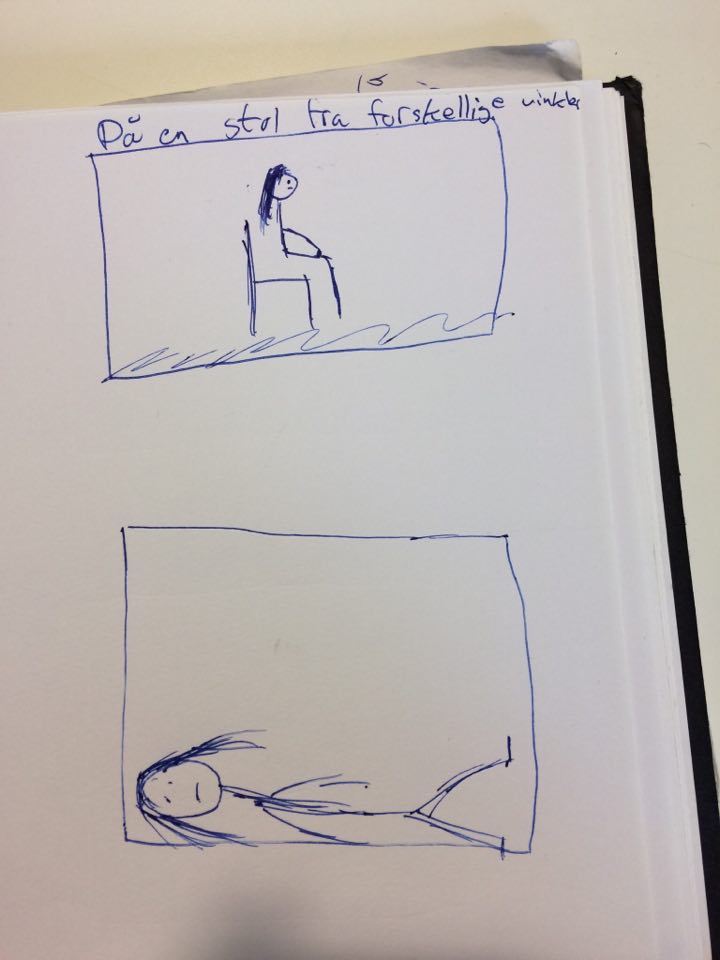 På en stol fra forskellige vinkler